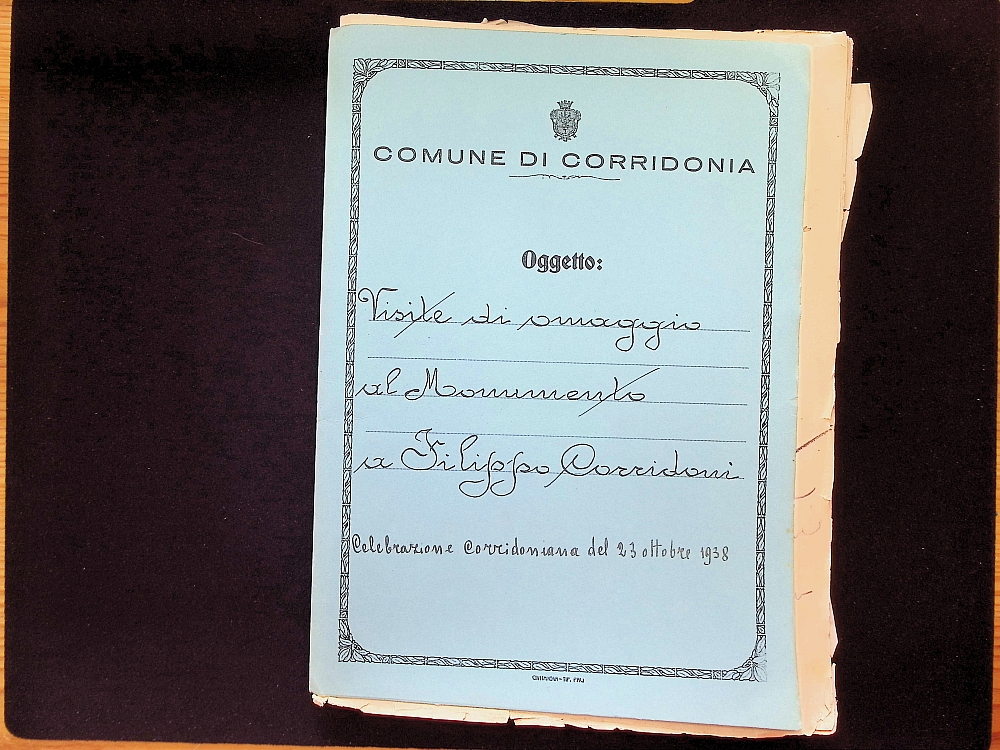 COMUNE DI CORRIDONIA
Oggetto:
Visite di omaggio
al Monumento
a Filippo Corridoni
Celebrazione Corridoniana del 23 ottobre 1938